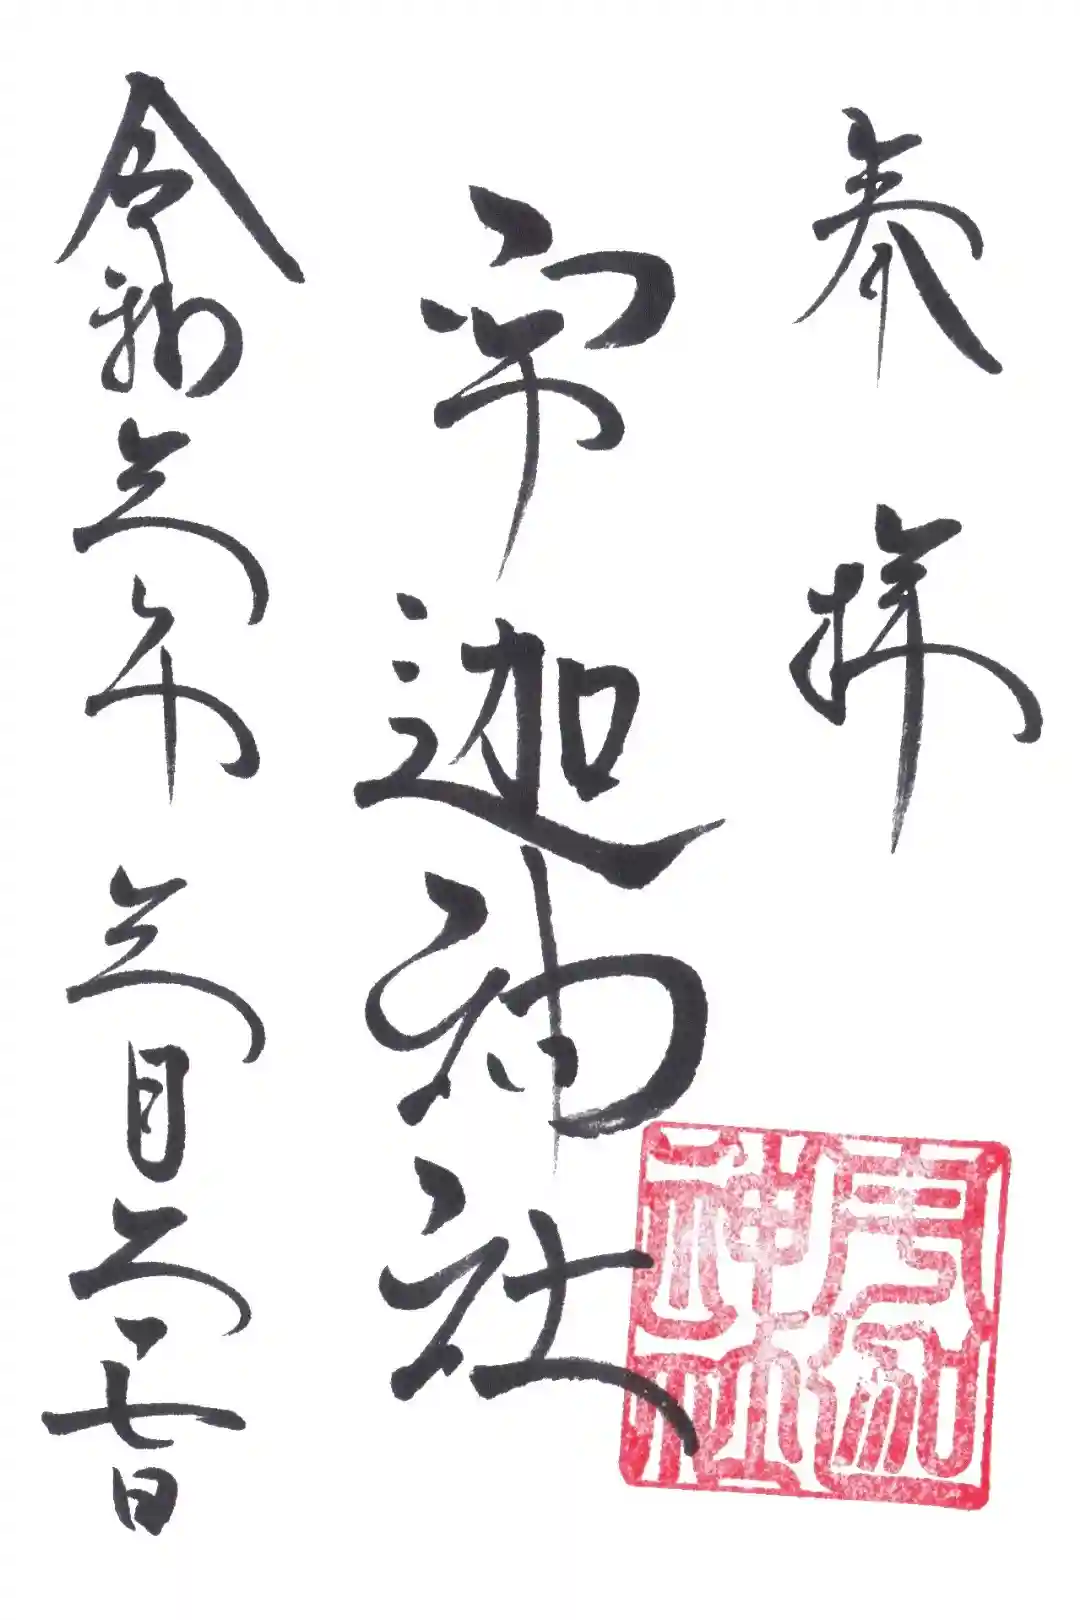 奉拝
宇迦神社
令和三年 三月二十七日
宇迦神社